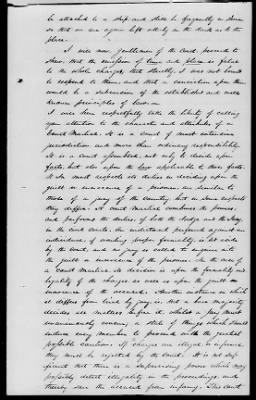 be attached to a ship and shall be frequently in
so that no one again left utterly in the dark as to the
place.
I will now, gentlemen of the Court, proceed to
show, that the omission of time and place is fatal
to the whole charge; that strictly, I was not bound
to respond to them; and that a conviction upon them
would be a subversion of the established and well
known principles of law.
I will here respectfully take the liberty of calling
your attention to the character and attributes of a
Court Martial. It is a court of most extensive
jurisdiction and more than ordinary responsibility.
It is a court assembled, not only to decide upon
facts, but also upon the law applicable to those facts.
In most respects its duties in deciding upon the
guilt or innocence of a prisoner are similar to
those of a jury of the country, but in some respects
they differ. A Court Martial combines the powers,
and performs the duties, of both the Judge and the Jury,
in the civil courts. An indictment preferred against an
individual, if wanting proper formality, is set aside
by the court, and no jury is called to enquire into
the guilt or innocence of the prisoner. In the case of
a Court Martial its decision is upon the formality and
legality of the charges as well as upon the guilt or
innocence of the accused. Another matter in which
it differs from trial by jury is, that a bare majority
decides all matters before it, whilst a jury must
unanimously concur; a state of things which should
induce every member to proceed with the greatest
possible caution. If charges are illegal &amp; informal
they must be rejected by the Court. It is not suf-
ficient that there is a supervising power which may
possibly detect illegality in the proceedings and
thereby save the accused from infamy. This Court